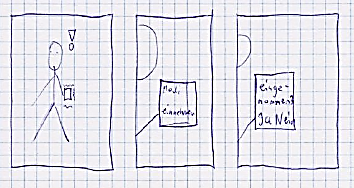 !
einnehmen
einge-
nommen?
Ja Nein